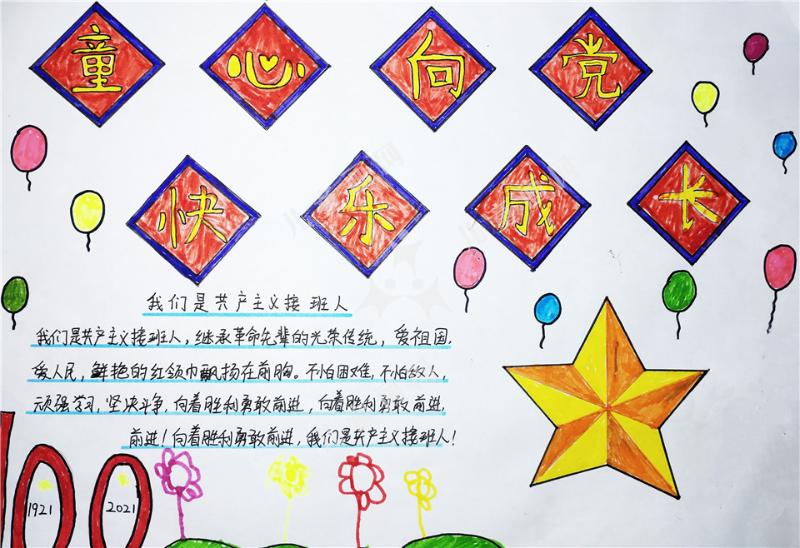 童心向党
快乐成长
我们是共产主义接班人
我们是共产主义接班人,继承革命先辈的光荣传统,爱祖国,
爱人民,鲜艳的红领巾飘扬在前胸。不怕困难,不怕敌人,
顽强学习,坚决斗争,向着胜利勇敢前进,向着胜利勇敢前进,
前进!向着胜利勇敢前进,我们是共产主义接班人!
100
1921 2021